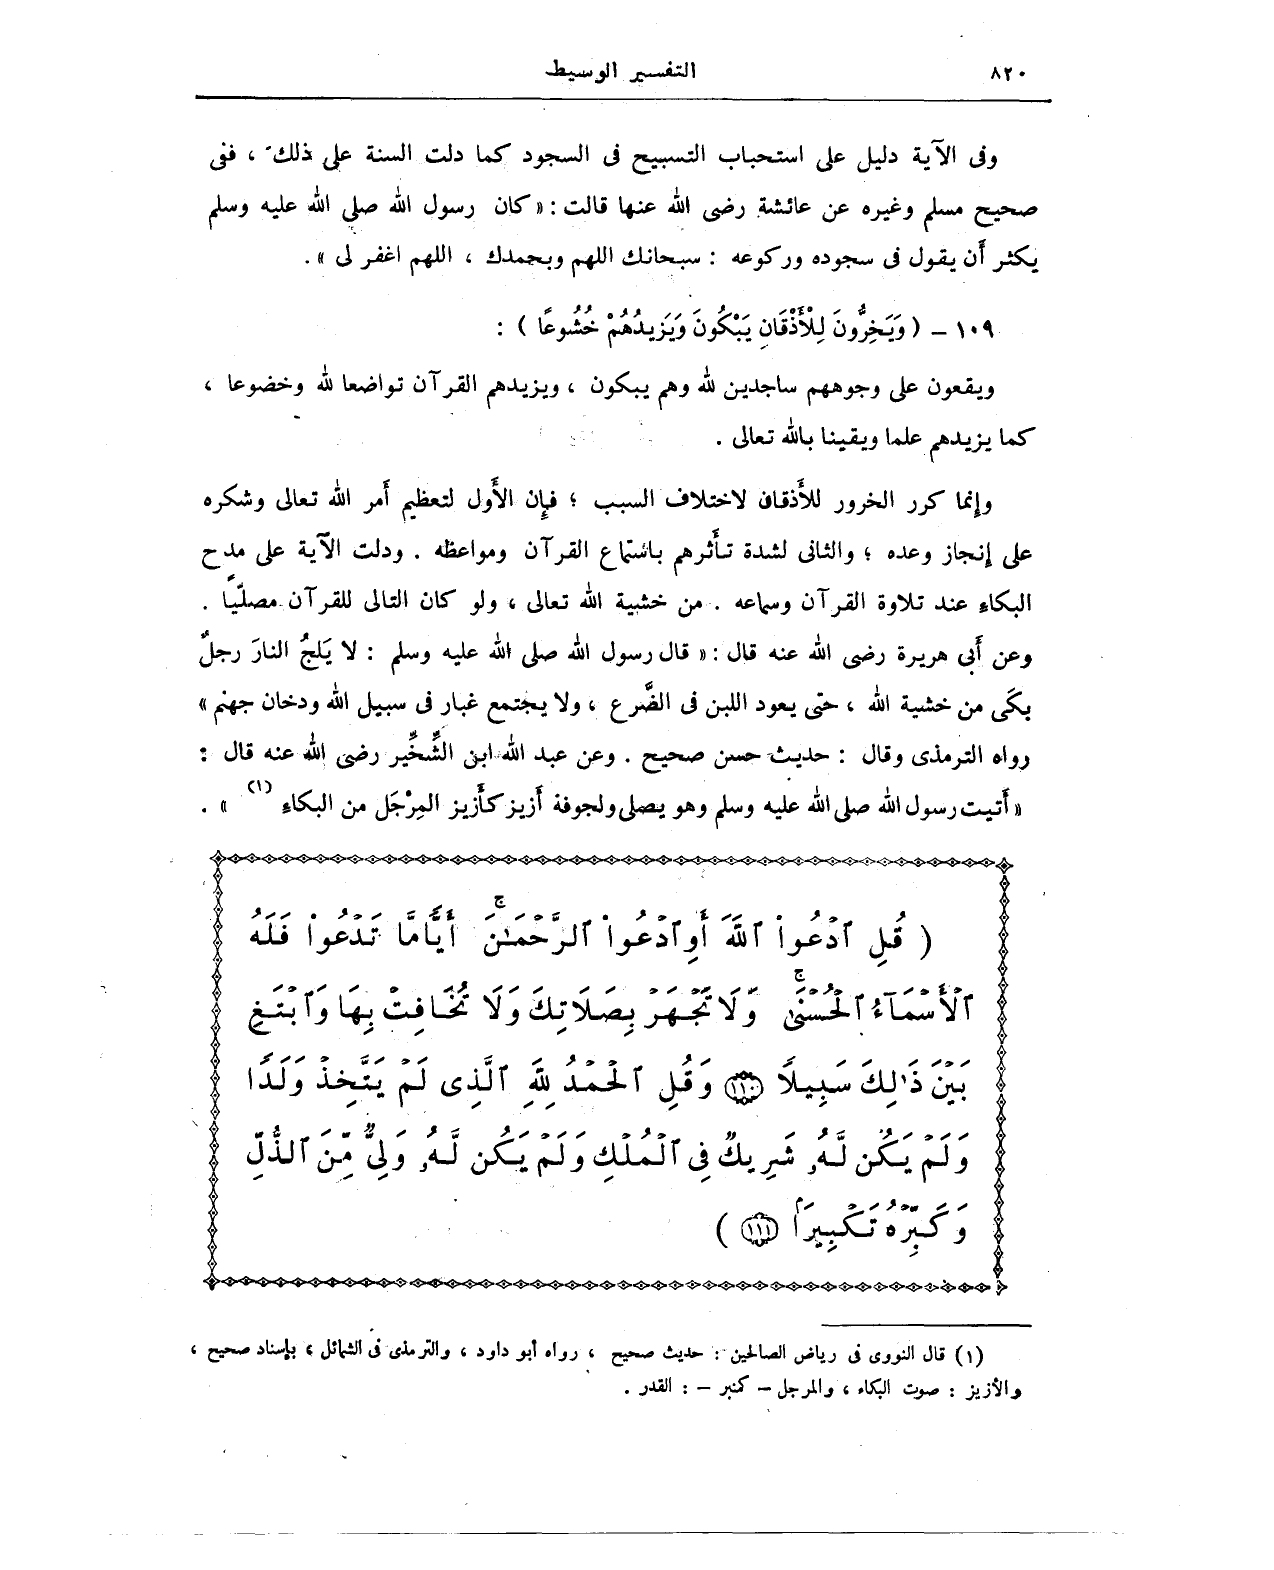 ٨٢٠
التفسير الوسيط
وفى الآية دليل على استحباب التسبيح فى السجود كما دلت السنة على ذلك ، ففى
صحيح مسلم وغيره عن عائشة رضى الله عنها قالت : « كان رسول الله صلى الله عليه وسلم
يكثر أن يقول فى سجوده وركوعه : سبحانك اللهم وبحمدك ، اللهم اغفر لى » .
١٠٩ – ( وَيَخِرُّونَ لِلْأَذْقَانِ يَبْكُونَ وَيَزِيدُهُمْ خُشُوعًا ) :
ويقعون على وجوههم ساجدين لله وهم يبكون ، ويزيدهم القرآن تواضعا لله وخضوعا ،
كما يزيدهم علما ويقينا بالله تعالى .
وإنما كرر الخرور للأذقان لاختلاف السبب ؛ فإن الأول لتعظيم أمر الله تعالى وشكره
على إنجاز وعده ؛ والثانى لشدة تأثرهم باستماع القرآن ومواعظه . ودلت الآية على مدح
البكاء عند تلاوة القرآن وسماعه . من خشية الله تعالى ، ولو كان التالى للقرآن مصليًّا .
وعن أبى هريرة رضى الله عنه قال : « قال رسول الله صلى الله عليه وسلم : لا يَلجُ النارَ رجلٌ
بكَى من خشية الله ، حتى يعود اللبن فى الضَّرع ، ولا يجتمع غبار فى سبيل الله ودخان جهنم »
رواه الترمذى وقال : حديث حسن صحيح . وعن عبد الله ابن الشِّخِّير رضى الله عنه قال :
« أتيت رسول الله صلى الله عليه وسلم وهو يصلى ولجوفة أزيز كأزيز المِرْجَل من البكاء (١) » .
( قُلِ ٱدْعُوا۟ ٱللَّهَ أَوِ ٱدْعُوا۟ ٱلرَّحْمَـٰنَ ۖ أَيًّا مَّا تَدْعُوا۟ فَلَهُ
ٱلْأَسْمَآءُ ٱلْحُسْنَىٰ ۚ وَلَا تَجْهَرْ بِصَلَاتِكَ وَلَا تُخَافِتْ بِهَا وَٱبْتَغِ
بَيْنَ ذَٰلِكَ سَبِيلًا ﴿١١٠﴾ وَقُلِ ٱلْحَمْدُ لِلَّهِ ٱلَّذِى لَمْ يَتَّخِذْ وَلَدًا
وَلَمْ يَكُن لَّهُۥ شَرِيكٌ فِى ٱلْمُلْكِ وَلَمْ يَكُن لَّهُۥ وَلِىٌّ مِّنَ ٱلذُّلِّ
وَكَبِّرْهُ تَكْبِيرًا ﴿١١١﴾ )
(١) قال النووى فى رياض الصالحين : حديث صحيح ، رواه أبو داود ، والترمذى فى الشمائل ، بإسناد صحيح ،
والأزيز : صوت البكاء ، والمرجل – كمنبر – : القدر .